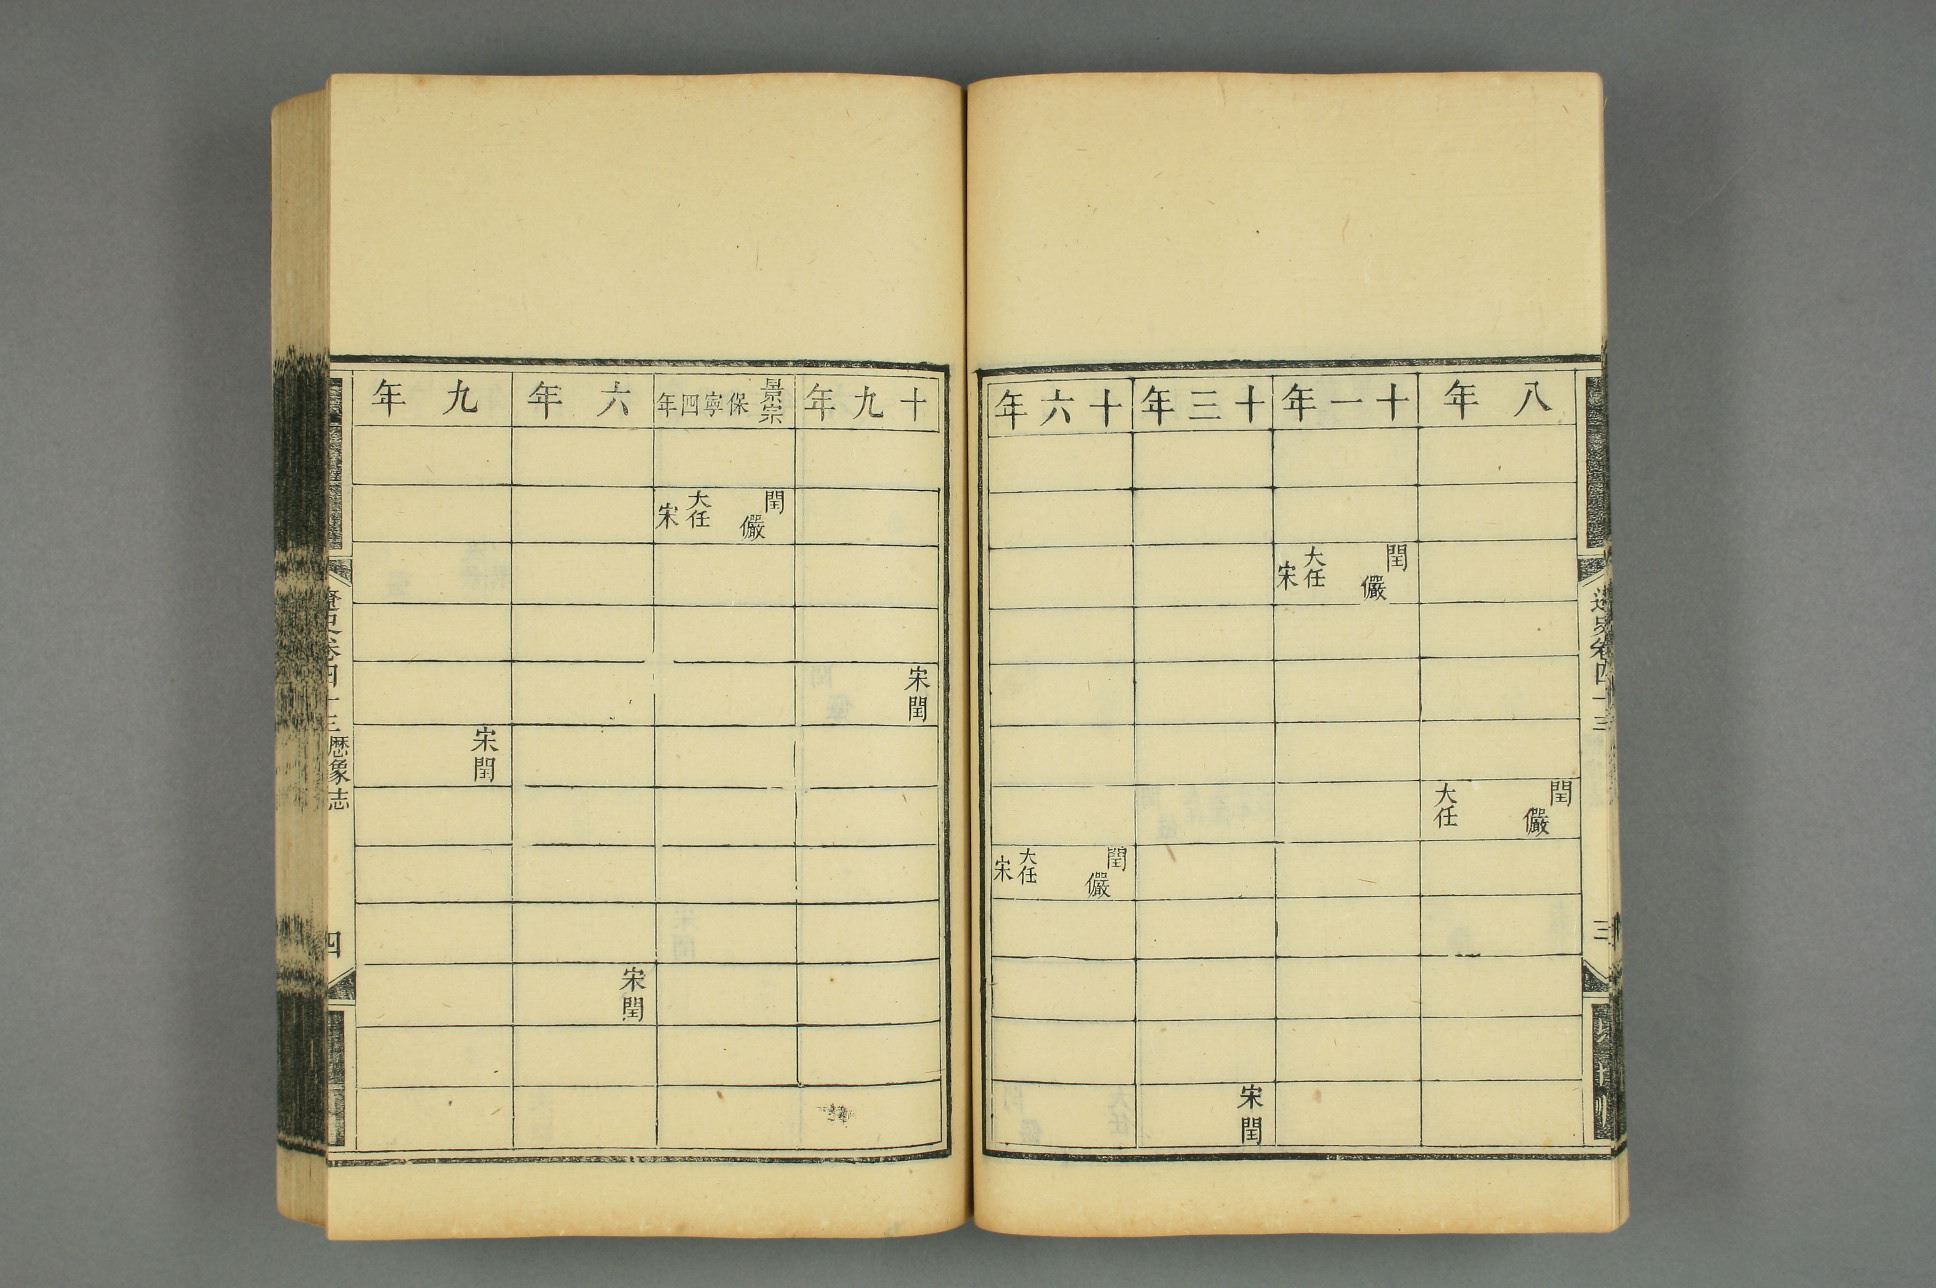 遼史卷四十三
三
八年
閏 儼 大任
十一年
閏 儼 大任 宋
十三年
宋閏
十六年
閏 儼 大任 宋
十九年
宋閏
景宗保寧四年
閏 儼 大任 宋
六年
宋閏
九年
宋閏
遼史卷四十三 歷象志
四